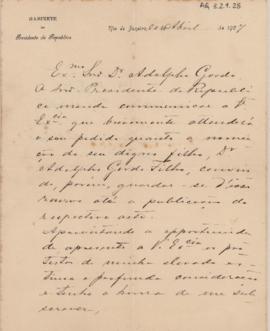 AG 8.2.1.28
GABINETE
DO
Presidente da Republica
Rio de Janeiro, 20 Abril de 1907
Ex.mo Snr. Dr. Adolpho Gordo
O Snr. Presidente da Republi-
ca manda communicar a V.
Ex.cia que brevemente attenderá
o seu pedido quanto a nomea-
ção de seu digno filho, Dr.
Adolpho Gordo Filho, convin-
do, porem, guardar-se d'isso
reserva até a publicação do
respectivo acto.
Aproveitando a opportunida-
de apresento a V. Ex.cia os pro-
testos de minha elevada es-
tima e profunda consideração
e tenho a honra de me sub-
screver,